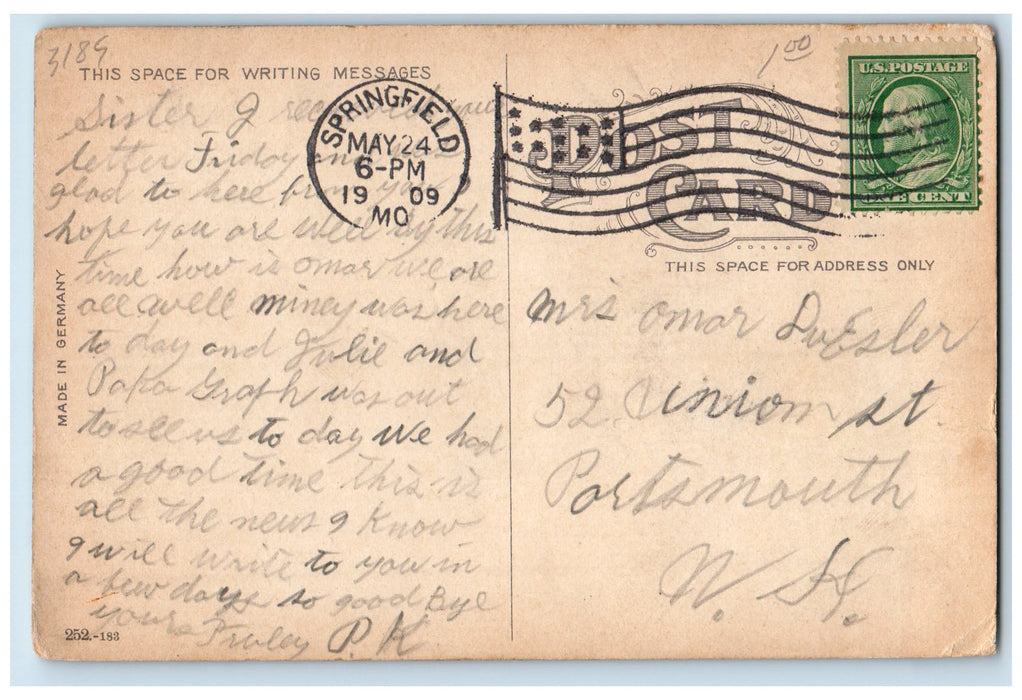 3189
1 00
THIS SPACE FOR WRITING MESSAGES
Sister I your
letter Friday and
glad to here from you I
hope you are well by this
time how is omar We are
all well miney was here
to day and Julie and
Papa Graph was out
to see us to day We had
a good time This is
all the news I Know
I will write to you in
a few days so good Bye
yours Truley P. K
252.-183
MADE IN GERMANY
SPRINGFIELD
MAY 24
6-PM
1909
MO
POST
CARD
U.S. POSTAGE
ONE CENT
THIS SPACE FOR ADDRESS ONLY
Mrs Omar DuEsler
52 Uniom st.
Portsmouth
N. H.